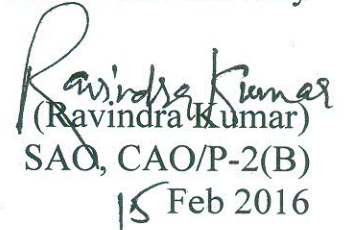 Ravindra Kumar
(Ravindra Kumar)
SAO, CAO/P-2(B)
15 Feb 2016